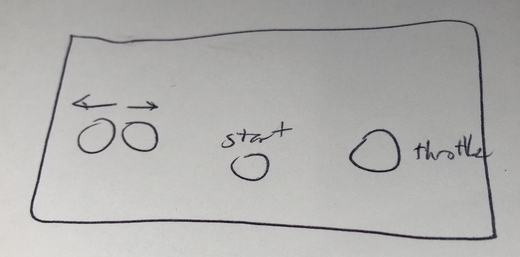 start
throttle